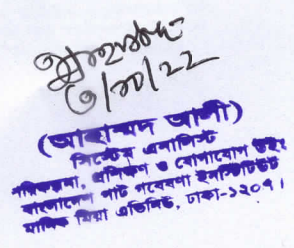 ৩/১০/২২
(আহাম্মদ আলী)
সিস্টেম এনালিস্ট
পরিকল্পনা, প্রশিক্ষণ ও যোগাযোগ উইং
বাংলাদেশ পাট গবেষণা ইনস্টিটিউট
মানিক মিয়া এভিনিউ, ঢাকা-১২০৭।